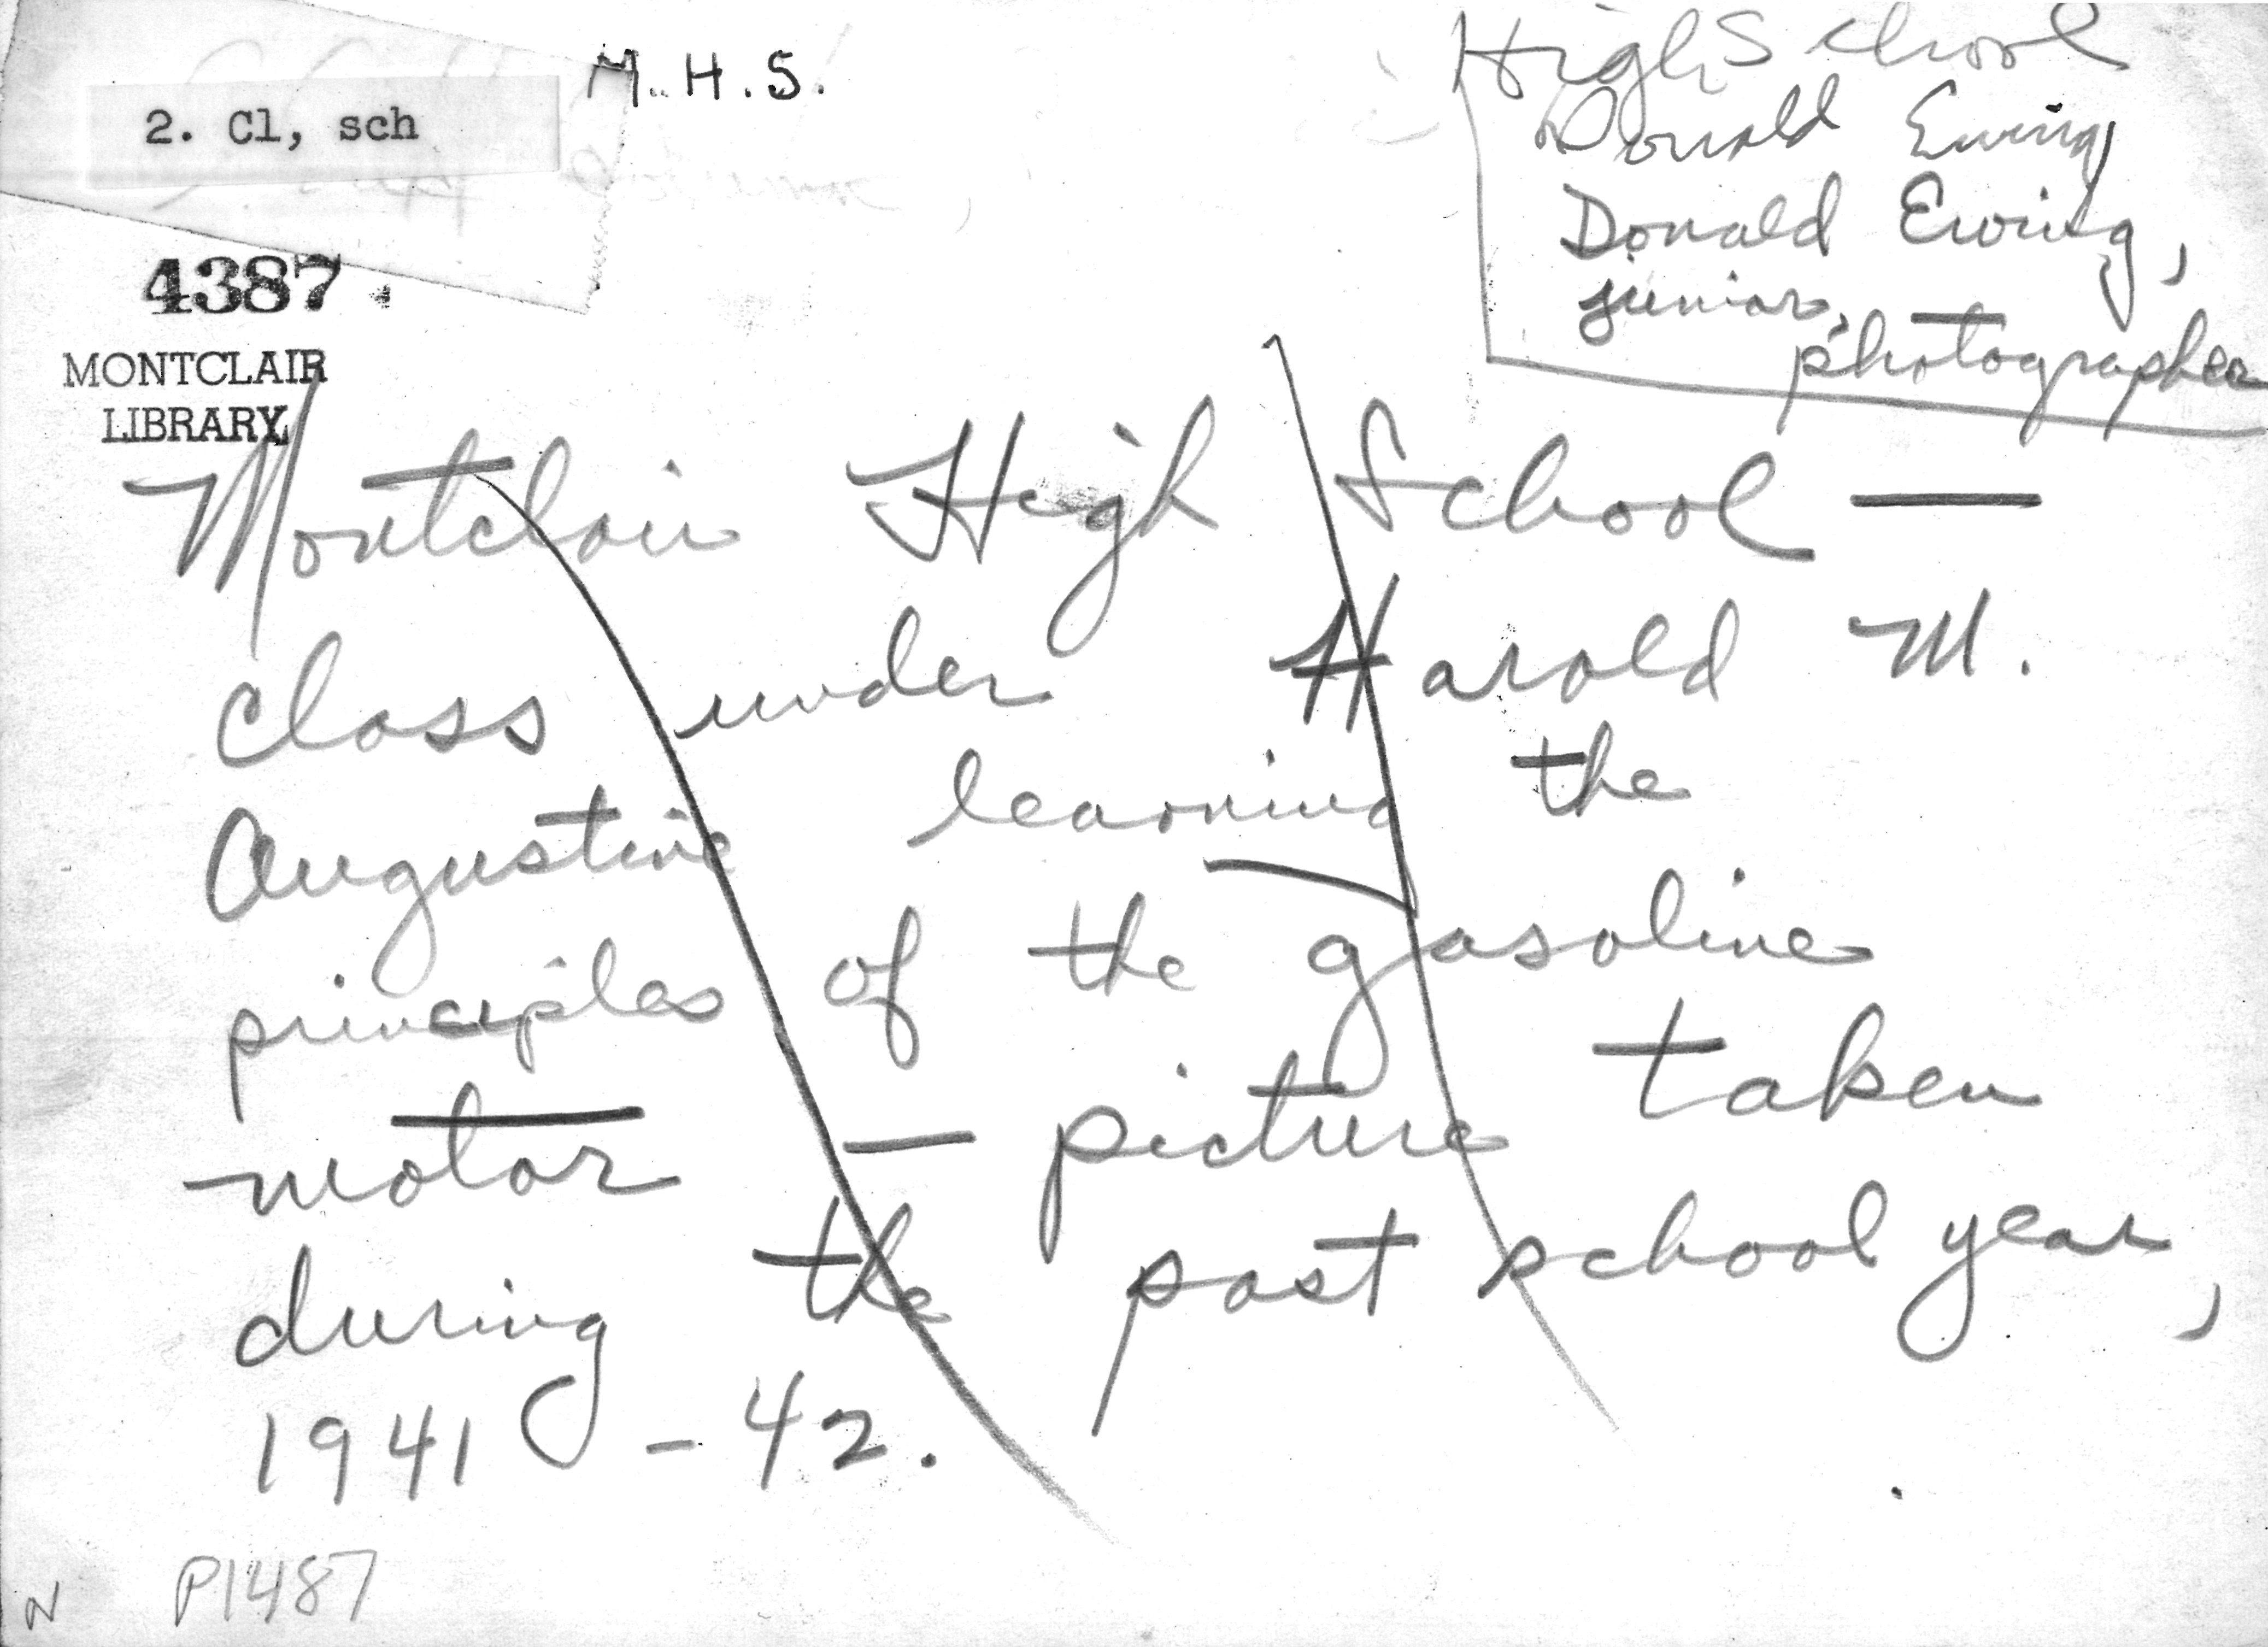 M.H.S.
2. Cl, sch
High School
Donald Ewing
Donald Ewing,
junior, —
photographer
4387
MONTCLAIR
LIBRARY
Montclair High School —
class under Harold M.
Augustine learning the
principles of the gasoline
motor — picture taken
during the past school year,
1941-42.
P1487
N